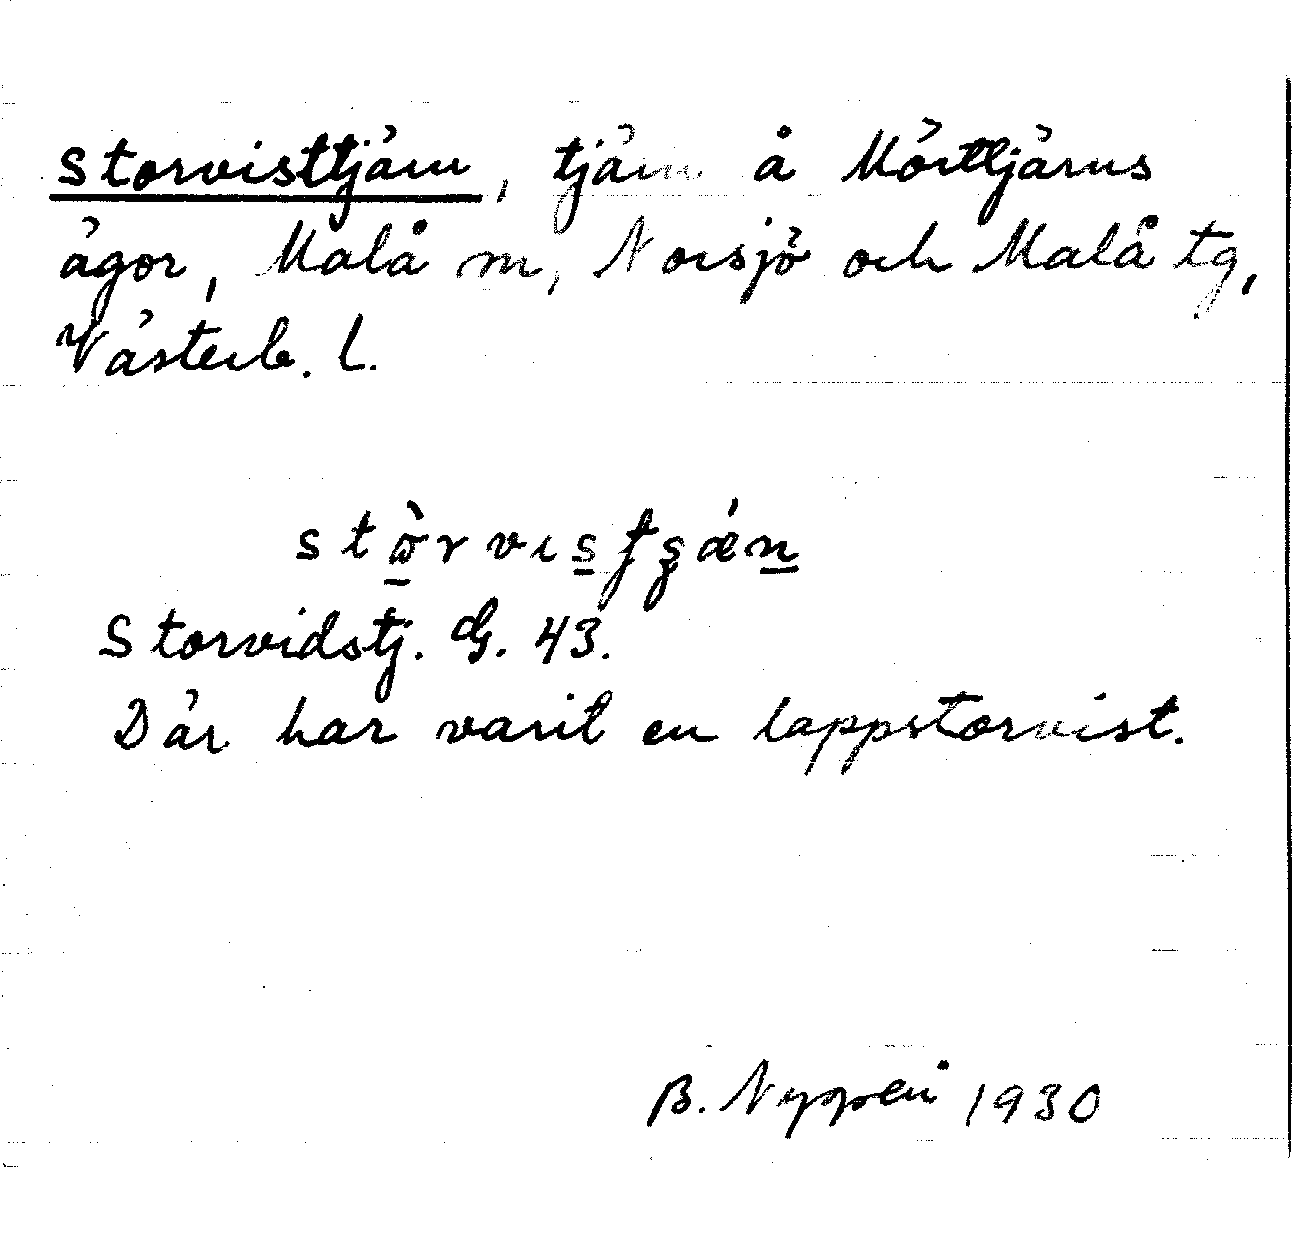 Storvisttjärn, tjärn å Mörttjärns
ägor, Malå sn, Norsjö och Malå tg,
Västerb. l.
Storvidstj. G. 43.
Där har varit en lappstorvist.
B. 1930